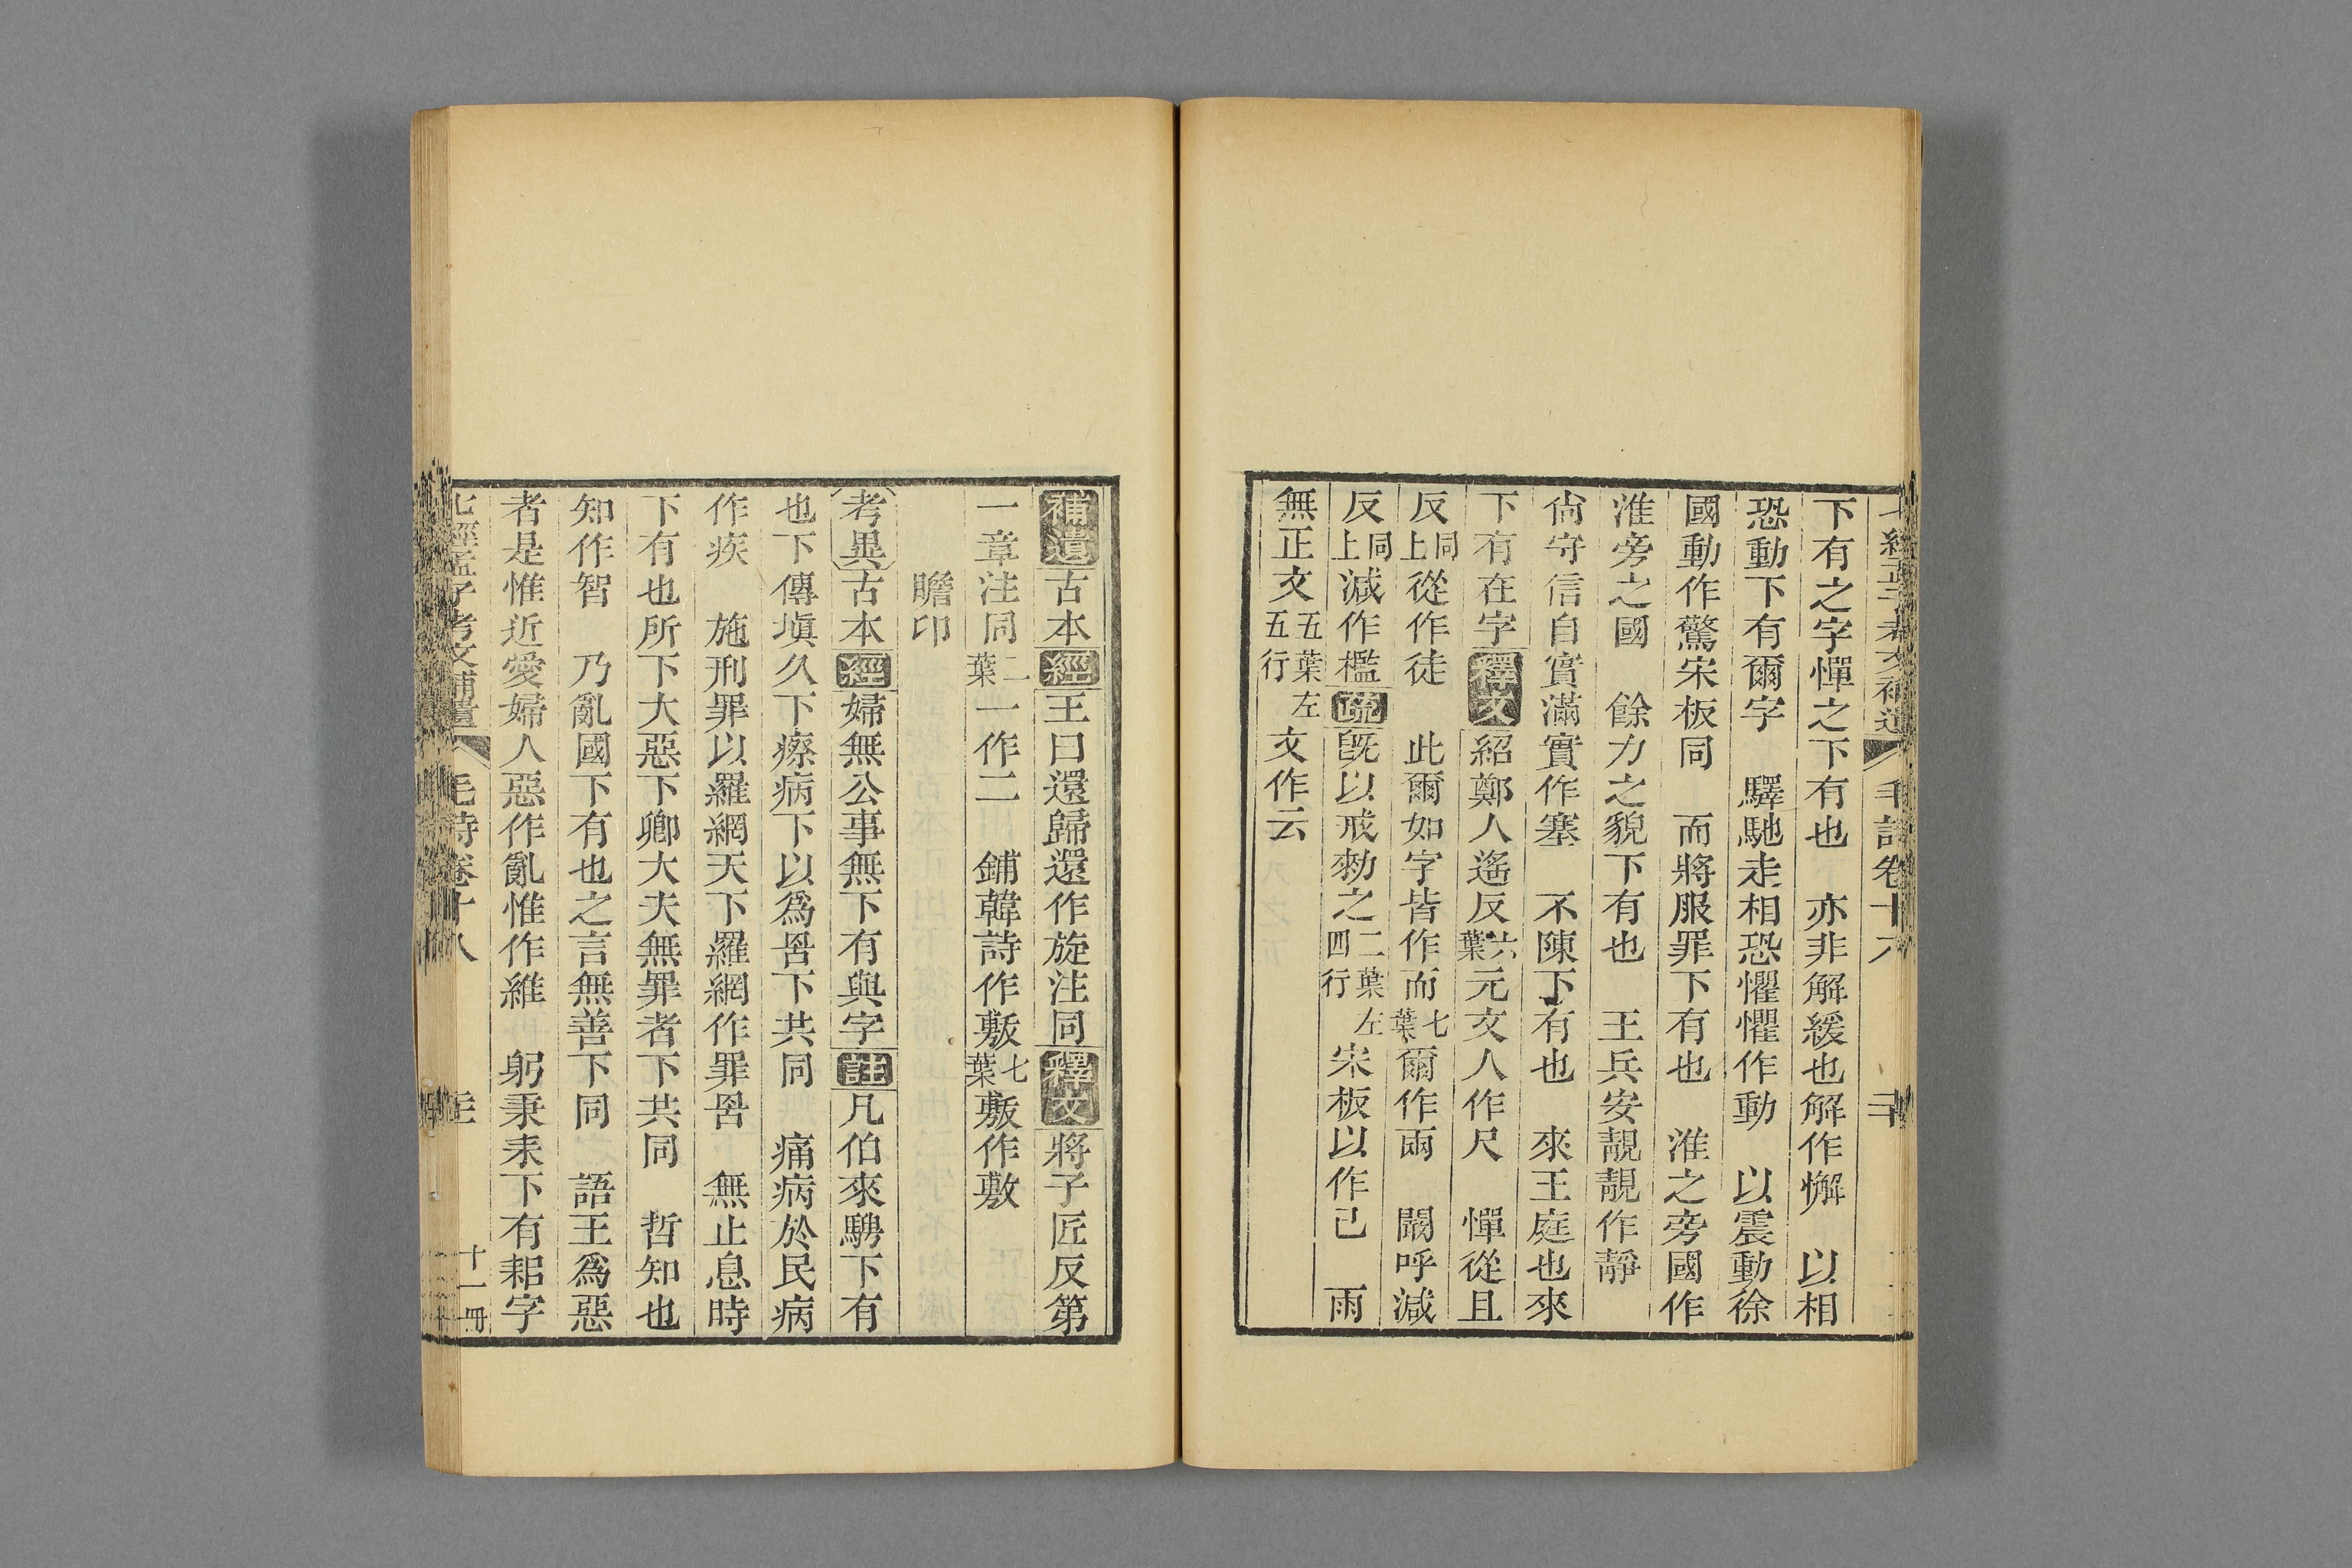 七經孟子考文補遺 毛詩卷十八
下有之字憚之下有也 亦非解緩也解作懈 以相
恐動下有爾字 驛馳走相恐懼懼作動 以震動徐
國動作驚宋板同 而將服罪下有也 淮之旁國作
淮旁之國 餘力之貌下有也 王兵安靚靚作靜
尙守信自實滿實作塞 不陳下有也 來王庭也來
下有在字釋文紹鄭人遙反六葉元文人作尺 憚從且
反同上從作徒 此爾如字皆作而七葉爾作兩 闞呼減
反同上減作檻疏旣以戒勑之二葉左四行宋板以作己 雨
無正文五葉左五行文作云
補遺古本經王曰還歸還作旋注同釋文將子匠反第
一章注同二葉一作二 鋪韓詩作敷七葉敷作敷
瞻卬
考異古本經婦無公事無下有與字註凡伯來騁下有
也下傳塡久下瘵病下以爲罟下共同 痛病於民病
作疾 施刑罪以羅網天下羅網作罪罟 無止息時
下有也所下大惡下卿大夫無罪者下共同 哲知也
知作智 乃亂國下有也之言無善下同 語王爲惡
者是惟近愛婦人惡作亂惟作維 躬秉耒下有耜字
七經孟子考文補遺 毛詩卷十八 十一冊